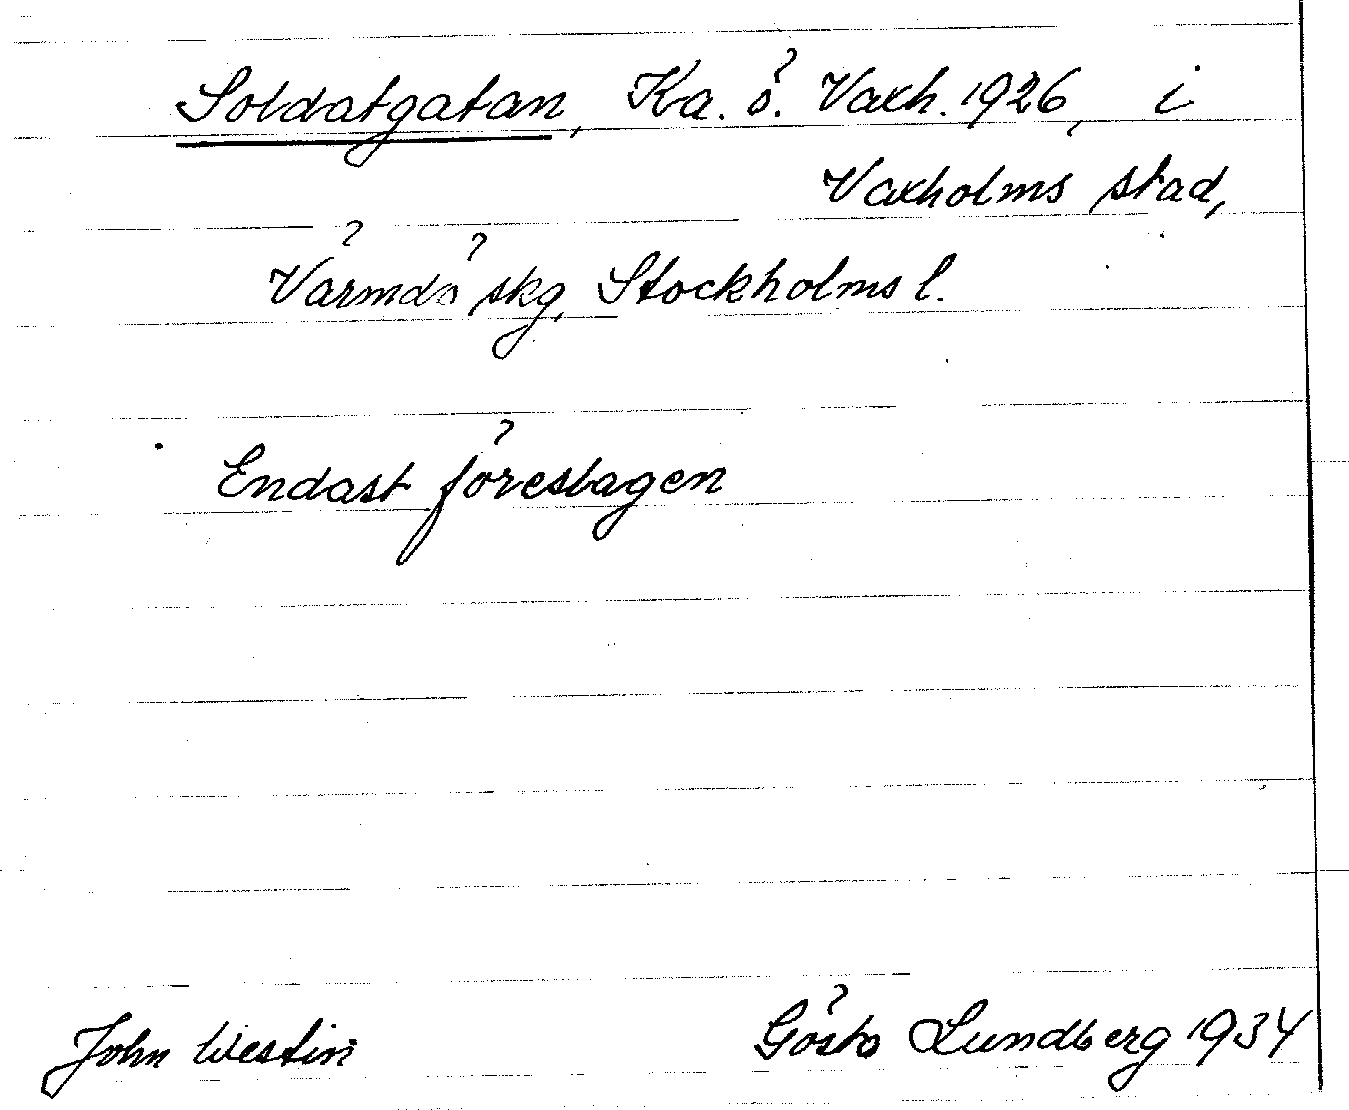 Soldatgatan, Ka. ö. Vaxh. 1926, i
Vaxholms stad,
Värmdö skg, Stockholms l.
Endast föreslagen
John Westin Gösta Lundberg 1934